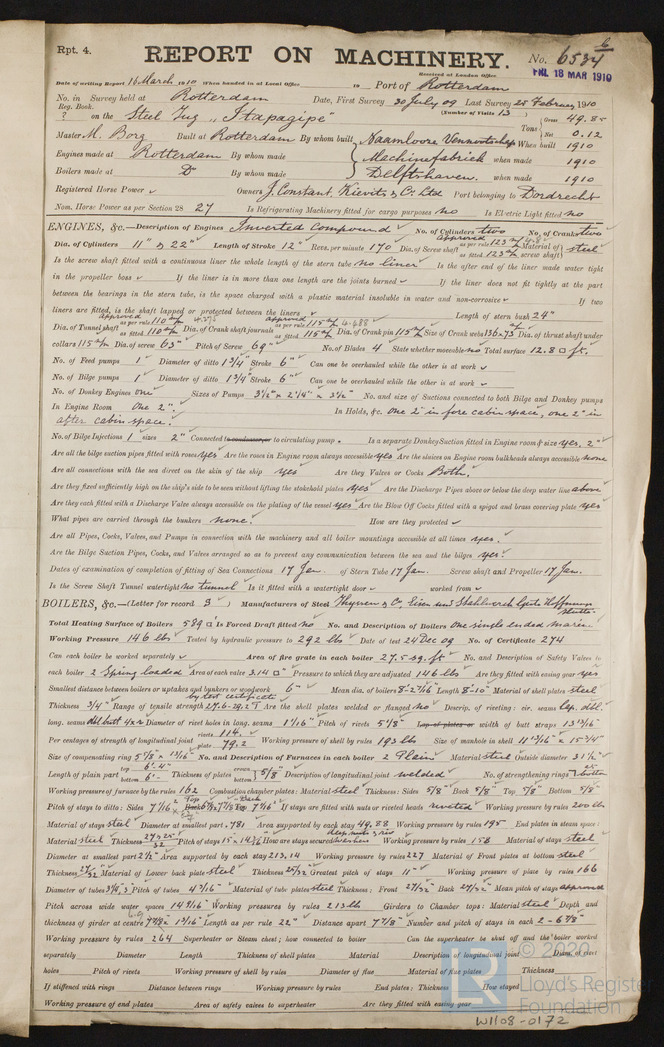 6
Rpt. 4.
REPORT ON MACHINERY.
No. 6534
Received at London Office
FRI. 18 MAR 1910
Date of writing Report 16 March 1910 When handed in at Local Office 19 Port of Rotterdam
No. in Survey held at Rotterdam Date, First Survey 30 July 09 Last Survey 25 February 1910
Reg. Book.
(Number of Visits 13)
? on the Steel Tug "Itapagipe" Tons Gross 49.85 Net 0.12
Master M. Borg Built at Rotterdam By whom built Naamlooze Vennootschap When built 1910
Engines made at Rotterdam By whom made Machinefabriek when made 1910
Boilers made at Do By whom made Delftshaven. when made 1910
Registered Horse Power Owners J. Constant, Kievits & Co. Ltd Port belonging to Dordrecht
Nom. Horse Power as per Section 28 27 Is Refrigerating Machinery fitted for cargo purposes no Is Electric Light fitted no
ENGINES, &c.—Description of Engines Inverted Compound No. of Cylinders two No. of Cranks two
Dia. of Cylinders 11" & 22" Length of Stroke 12" Revs. per minute 170 Dia. of Screw shaft Approved as per rule 123 m/m as fitted 123 m/m Material of screw shaft steel
Is the screw shaft fitted with a continuous liner the whole length of the stern tube no liner Is the after end of the liner made water tight
in the propeller boss If the liner is in more than one length are the joints burned If the liner does not fit tightly at the part
between the bearings in the stern tube, is the space charged with a plastic material insoluble in water and non-corrosive If two
liners are fitted, is the shaft lapped or protected between the liners Length of stern bush 24"
Dia. of Tunnel shaft Approved as per rule 110 m/m as fitted 110 m/m Dia. of Crank shaft journals Approved as per rule 115 m/m as fitted 115 m/m Dia. of Crank pin 115 m/m Size of Crank webs 136x73 m/m Dia. of thrust shaft under
collars 115 m/m Dia. of screw 63" Pitch of Screw 69" No. of Blades 4 State whether moveable no Total surface 12.8 □ ft.
No. of Feed pumps 1 Diameter of ditto 1 3/4" Stroke 6" Can one be overhauled while the other is at work
No. of Bilge pumps 1 Diameter of ditto 1 3/4" Stroke 6" Can one be overhauled while the other is at work
No. of Donkey Engines one Sizes of Pumps 3 1/2" x 2 1/4" x 3 1/2" No. and size of Suctions connected to both Bilge and Donkey pumps
In Engine Room One 2" In Holds, &c. one 2" in fore cabin space, one 2" in
after cabin space.
No. of Bilge Injections 1 sizes 2" Connected to condenser, or to circulating pump. Is a separate Donkey Suction fitted in Engine room & size yes, 2"
Are all the bilge suction pipes fitted with roses yes Are the roses in Engine room always accessible yes Are the sluices on Engine room bulkheads always accessible none
Are all connections with the sea direct on the skin of the ship yes Are they Valves or Cocks Both.
Are they fixed sufficiently high on the ship's side to be seen without lifting the stokehold plates yes Are the Discharge Pipes above or below the deep water line above
Are they each fitted with a Discharge Valve always accessible on the plating of the vessel yes Are the Blow Off Cocks fitted with a spigot and brass covering plate yes
What pipes are carried through the bunkers none. How are they protected
Are all Pipes, Cocks, Valves, and Pumps in connection with the machinery and all boiler mountings accessible at all times yes.
Are the Bilge Suction Pipes, Cocks, and Valves arranged so as to prevent any communication between the sea and the bilges yes.
Dates of examination of completion of fitting of Sea Connections 17 Jan. of Stern Tube 17 Jan. Screw shaft and Propeller 17 Jan.
Is the Screw Shaft Tunnel watertight no tunnel Is it fitted with a watertight door worked from
BOILERS, &c.—(Letter for record S) Manufacturers of Steel Thyssen & Co, Eisen und Stahlwerk
Total Heating Surface of Boilers 589 □' Is Forced Draft fitted no No. and Description of Boilers One single ended marine
Working Pressure 146 lbs Tested by hydraulic pressure to 292 lbs Date of test 24 Dec 09 No. of Certificate 274
Can each boiler be worked separately Area of fire grate in each boiler 27.5 sq. ft No. and Description of Safety Valves to
each boiler 2 Spring loaded Area of each valve 3.14 □" Pressure to which they are adjusted 146 lbs Are they fitted with easing gear yes
Smallest distance between boilers or uptakes and bunkers or woodwork 6" Mean dia. of boilers 8-2 7/16" Length 8-10" Material of shell plates steel
Thickness 3/4" Range of tensile strength by test certificate 27.6-29.2 T Are the shell plates welded or flanged no Descrip. of riveting: cir. seams lap. dbl.
long. seams dbl butt 4x4 Diameter of rivet holes in long. seams 1 1/16" Pitch of rivets 5 1/8" Lap of plates or width of butt straps 13 13/16"
Per centages of strength of longitudinal joint rivets 114. plate 79.2 Working pressure of shell by rules 193 lbs Size of manhole in shell 11 13/16" x 15 3/4"
Size of compensating ring 5 7/8" x 13/16" No. and Description of Furnaces in each boiler 2 Plain Material steel Outside diameter 31 1/2"
Length of plain part top 6'-4" bottom 6'- Thickness of plates crown bottom 5/8" Description of longitudinal joint welded No. of strengthening rings
Working pressure of furnace by the rules 162 Combustion chamber plates: Material steel Thickness: Sides 5/8" Back 5/8" Top 5/8" Bottom 5/8"
Pitch of stays to ditto: Sides 7 7/16" If stays are fitted with nuts or riveted heads riveted Working pressure by rules 200 lbs
Material of stays steel Diameter at smallest part .781 Area supported by each stay 49.88 Working pressure by rules 195 End plates in steam space:
Material steel Thickness 27/32 Pitch of stays 15 x 14 3/16" How are stays secured Working pressure by rules 158 Material of stays steel
Diameter at smallest part 2 1/2" Area supported by each stay 213.14 Working pressure by rules 227 Material of Front plates at bottom steel
Thickness 27/32 Material of Lower back plate steel Thickness 25/32 Greatest pitch of stays 11" Working pressure of plate by rules 166
Diameter of tubes 3 1/4" Pitch of tubes 4 3/16" Material of tube plates steel Thickness: Front 27/32" Back 27/32" Mean pitch of stays approved
Pitch across wide water spaces 14 9/16" Working pressures by rules 213 lbs Girders to Chamber tops: Material steel Depth and
thickness of girder at centre 7 7/8" x 13/16" Length as per rule 22" Distance apart 7 7/8" Number and pitch of stays in each 2 - 6 7/8"
Working pressure by rules 264 Superheater or Steam chest; how connected to boiler Can the superheater be shut off and the boiler worked
separately Diameter Length Thickness of shell plates Material Description of longitudinal joint Diam. of rivet
holes Pitch of rivets Working pressure of shell by rules Diameter of flue Material of flue plates Thickness
If stiffened with rings Distance between rings Working pressure by rules End plates: Thickness How stayed
Working pressure of end plates Area of safety valves to superheater Are they fitted with easing gear
© 2020
Lloyd's Register
Foundation
W1108-0172